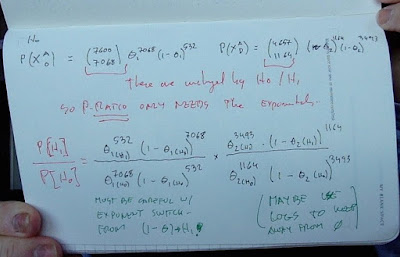 H₀
P(X_D^A) = (7600 7068) θ₁^7068 (1-θ₁)^532 P(X_D^A) = (4657 1164) θ₂^1164 (1-θ₂)^3493
These are unchanged by H₀ / H₁
SO P-RATIO ONLY NEEDS The Exponents.
P[H₁] / P[H₀] = θ₁(H₁)^532 (1-θ₁(H₁))^7068 / θ₁(H₀)^7068 (1-θ₁(H₀))^532 × θ₂(H₁)^3493 · (1-θ₂(H₁))^1164 / θ₂(H₀)^1164 (1-θ₂(H₀))^3493
MUST BE CAREFUL W/
EXPONENT SWITCH
FROM (1-θ)→H₁
(MAYBE USE
LOGS TO KEEP
AWAY FROM ∅)